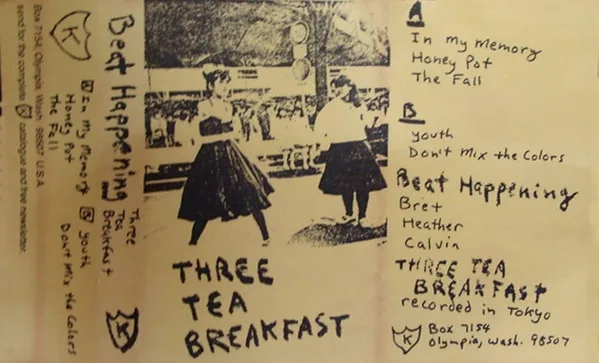 Box 7154, Olympia, Wash. 98507 U.S.A.
send for the complete K catalogue and free newsletter.
K
Beat Happening
Three
Tea
Breakfast
A In My Memory
Honey Pot
The Fall
B Youth
Don't Mix the Colors
K
THREE
TEA
BREAKFAST
A
In my Memory
Honey Pot
The Fall
B
youth
Don't Mix the Colors
Beat Happening
Bret
Heather
Calvin
THREE TEA
BREAKFAST
recorded in Tokyo
K Box 7154
Olympia, Wash. 98507